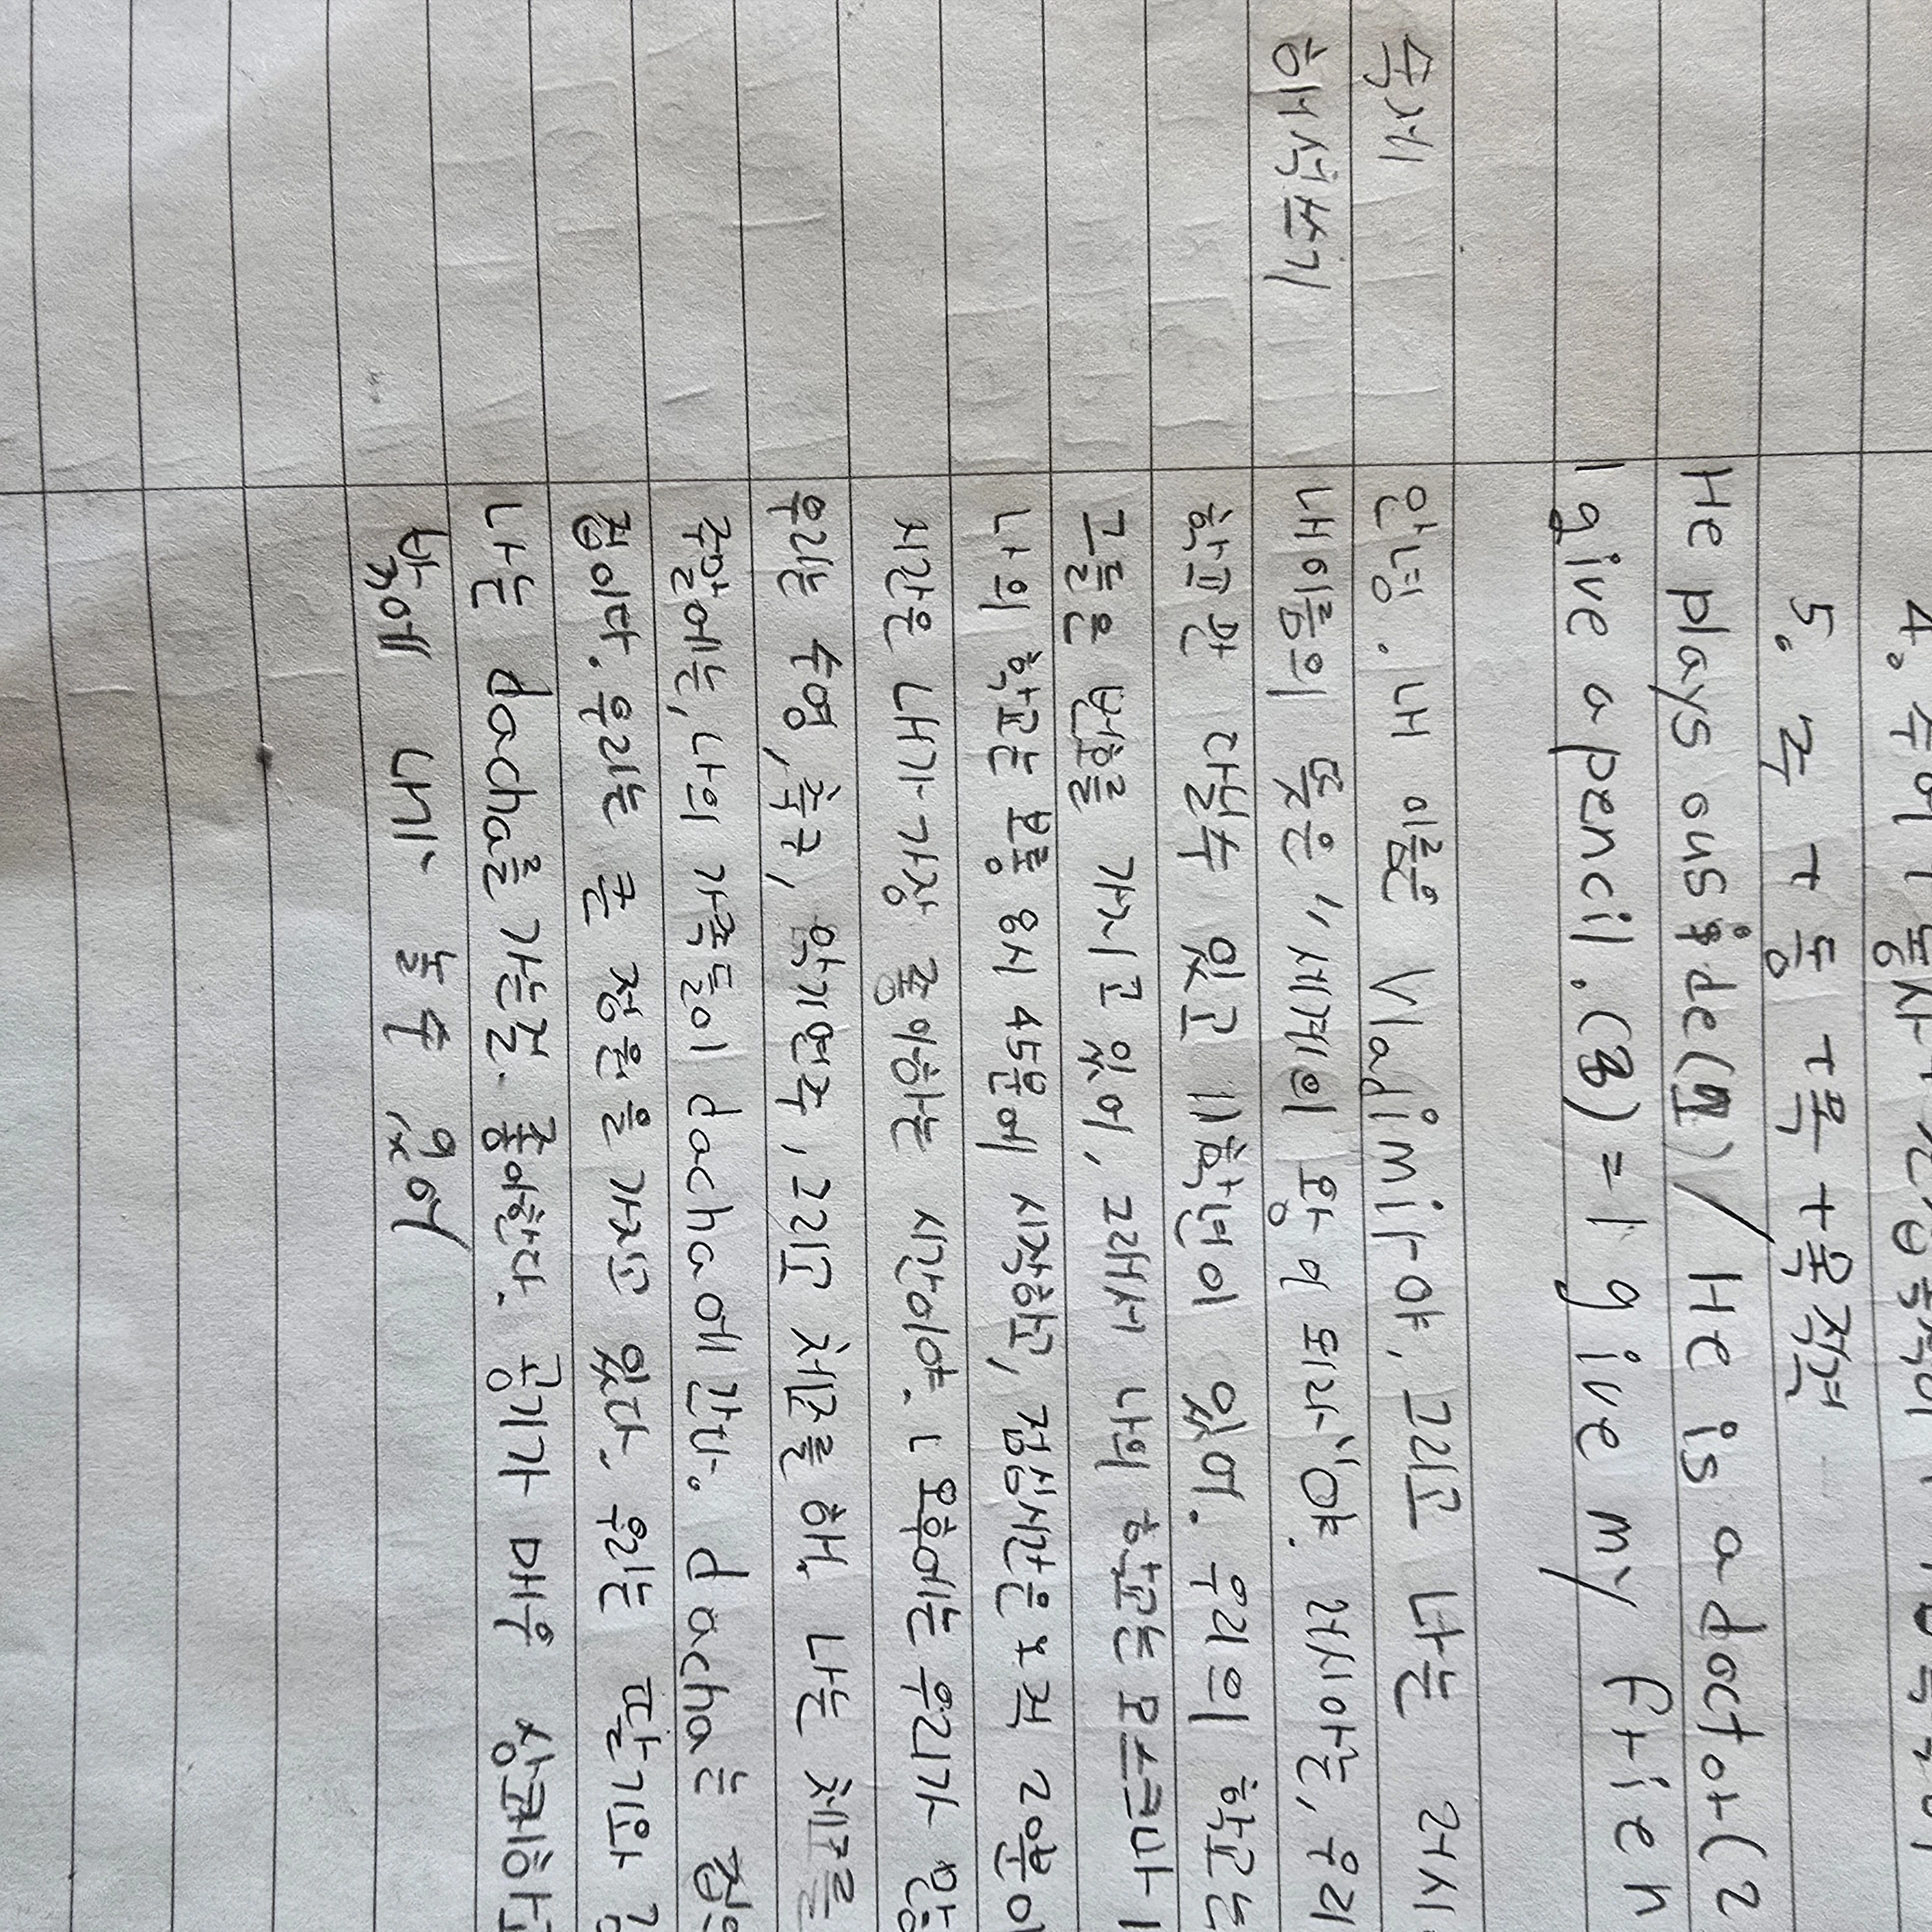 4. 주어 + 동사 +
5. 주 + 동 + 목 + 목적격
He plays ouside(1) / He is a doctor(2
I give a pencil.(3) = I give my frien
숙제 안녕. 내 이름은 Vladimir야, 그리고 나는 러시
해석쓰기 내이름의 뜻은 "세계의 왕이 되라"야. 러시아는, 우리
학교만 다닐수 있고 11학년이 있어. 우리의 학교는
그들은 번호를 가지고 있어, 그래서 나의 학교는 모스크바 1
나의 학교는 보통 8시 45분에 시작하고, 점심시간은 오직 20분이
시간은 내가 가장 좋아하는 시간이야. 오후에는 우리가 많
우리는 수영, 축구, 악기연주, 그리고 체스를 해. 나는 체스를
주말에는, 나의 가족들이 dacha에 간다. dacha는 집
집이다. 우리는 큰 정원을 가지고 있다. 우리는 딸기와
나는 dacha를 가는걸 좋아한다. 공기가 매우 상쾌하고
밖에 내가 놀수 있어